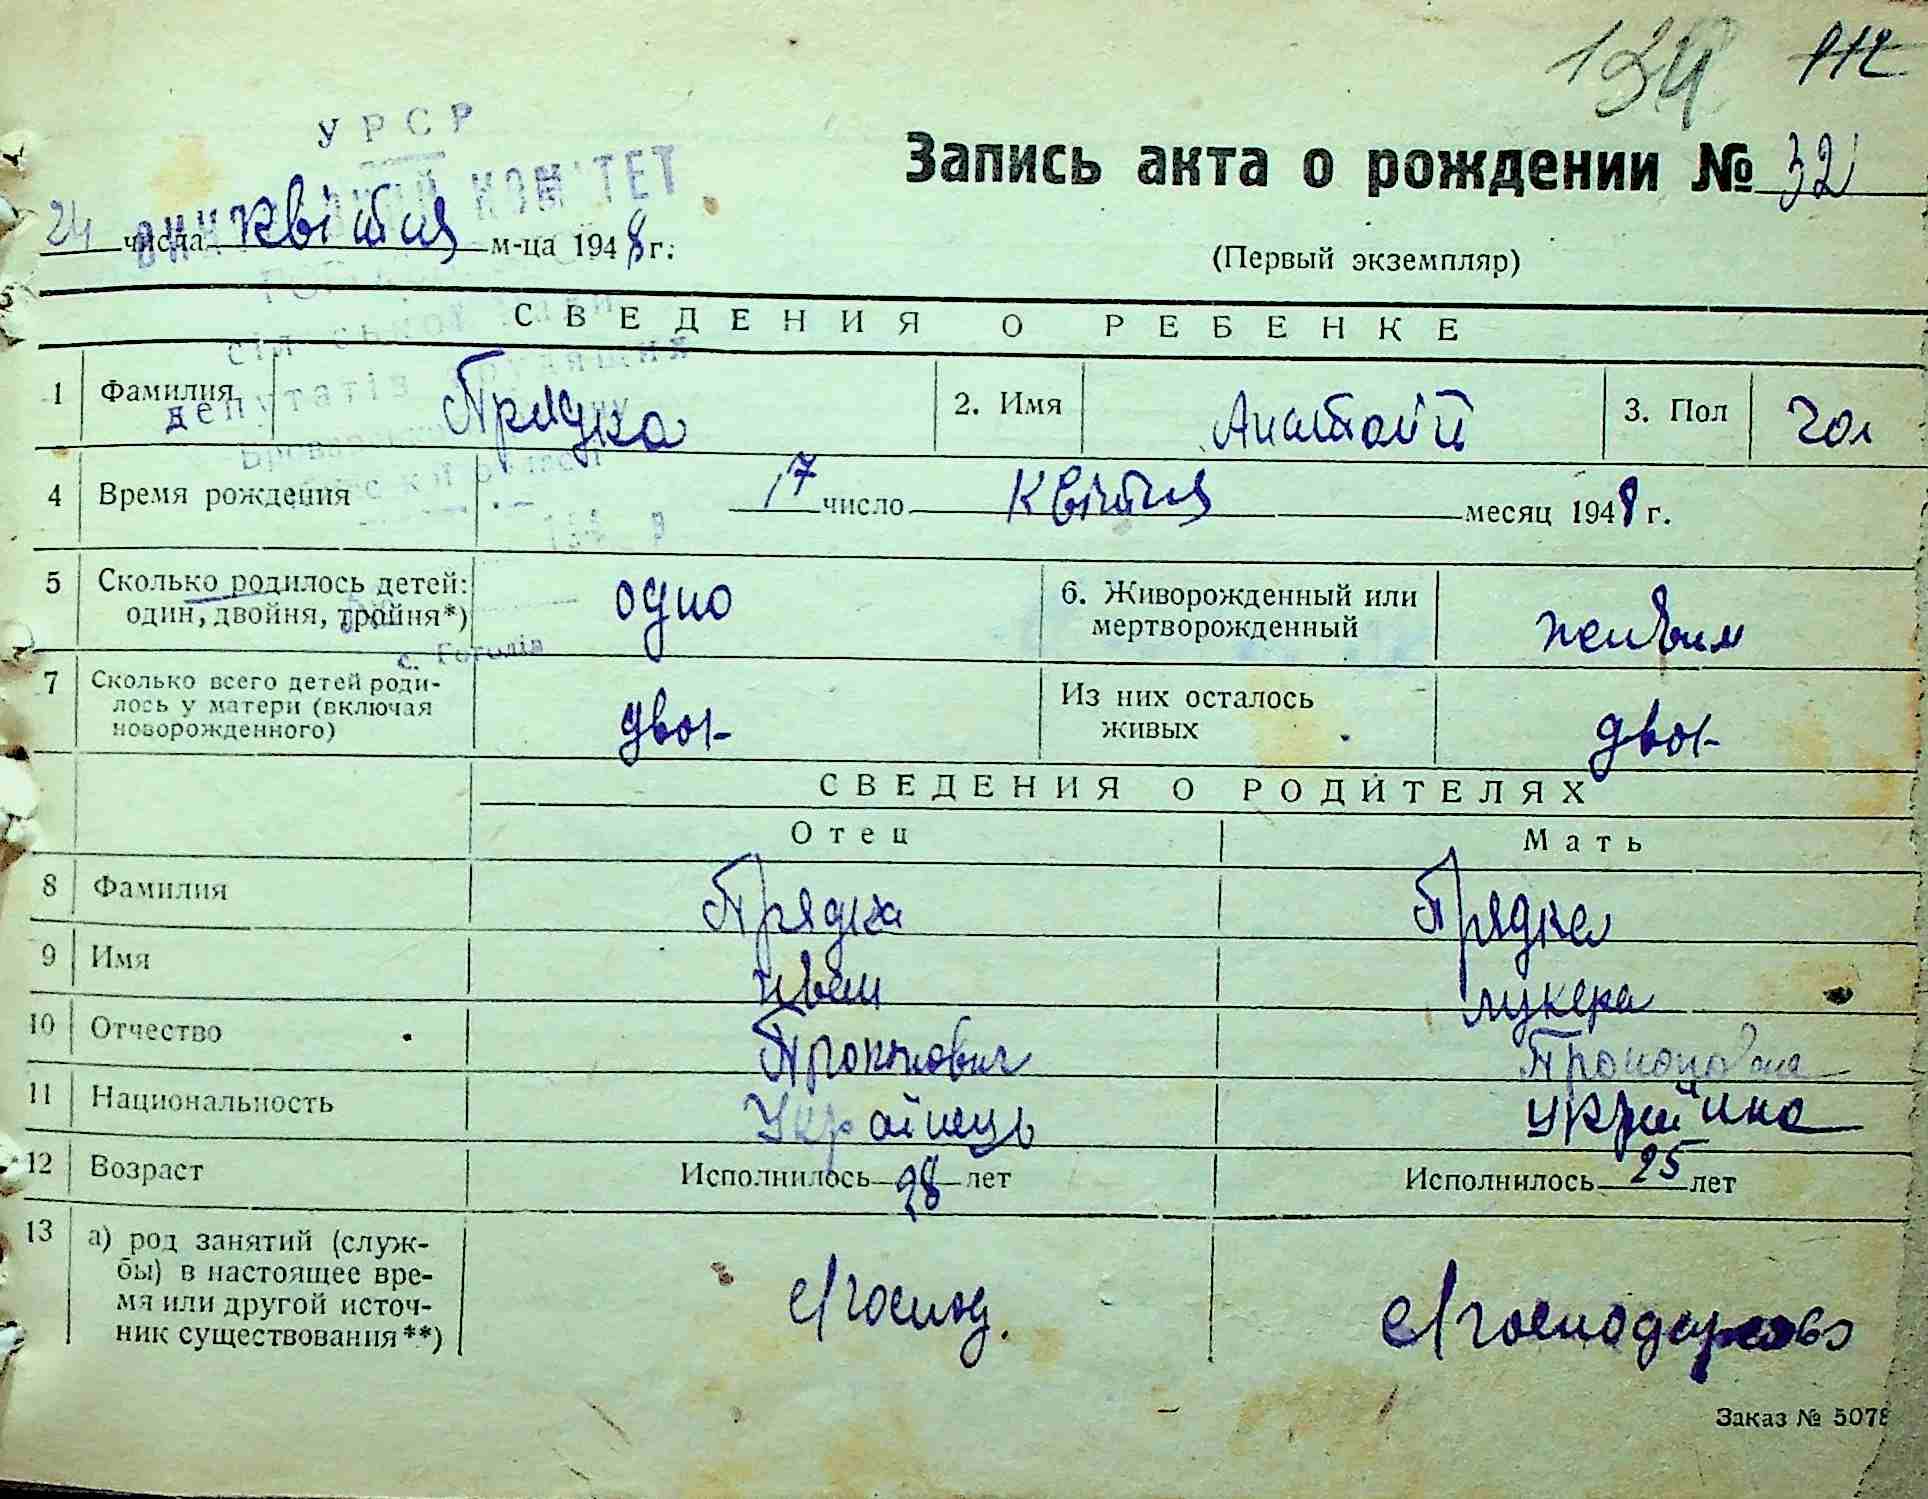 134 112
УРСР
КОМІТЕТ
Запись акта о рождении № 32
24 числа квітня м-ца 1948 г.
(Первый экземпляр)
сільської ради
СВЕДЕНИЯ О РЕБЕНКЕ
депутатів трудящих
1 Фамилия Прядка 2. Имя Анатолій 3. Пол чол
4 Время рождения 17 число квітня месяц 1948 г.
194 р
5 Сколько родилось детей: один, двойня, тройня*) одно 6. Живорожденный или мертворожденный живим
с. Гоголів
7 Сколько всего детей родилось у матери (включая новорожденного) двоє Из них осталось живых двоє
СВЕДЕНИЯ О РОДИТЕЛЯХ
Отец Мать
8 Фамилия Прядка Прядка
9 Имя Іван Лукера
10 Отчество Прокопович Прокоповна
11 Национальность Українець Українка
12 Возраст Исполнилось 28 лет Исполнилось 25 лет
13 а) род занятий (служ-
бы) в настоящее вре-
мя или другой источ-
ник существования**)
с/господ. с/господарство
Заказ № 5078